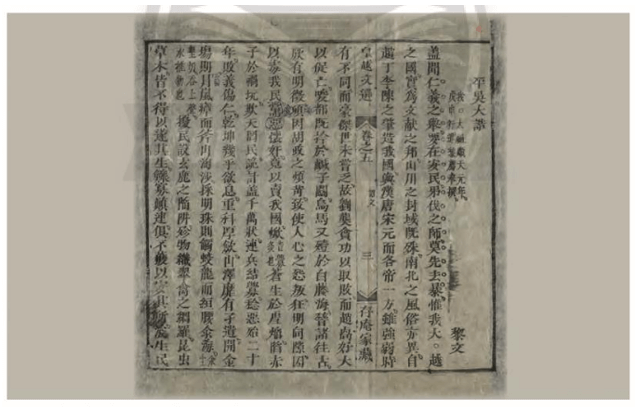 平吳大誥
黎文
蓋聞仁義之舉要在安民弔伐之師莫先去暴惟我大越
之國實為文献之邦山川之封域既殊南北之風俗亦異自
趙丁李陳之肇造我國與漢唐宋元而各帝一方雖強弱時
皇越文選 卷之五 誥文 三 希庵家藏
有不同而豪傑世未嘗乏故劉龔貪功以取敗而趙卨好大
以促亡唆都既擒於鹹子關烏馬又殪於白藤海嵇諸往古
厥有明徵頃因胡政之煩苛致使人心之怨叛狂明伺隙因
以毒我民黨惡懷奸竟以賣我國焮蒼生於虐焰陷赤
子於禍坑欺天罔民詭計盖千萬狀連兵結釁稔惡殆二十
年敗義傷仁乾坤幾乎欲息重科厚歛山澤靡有孑遺開金
塲則冒嵐瘴而斧山淘沙採明珠則觸蛟龍而緪腰汆海
擾民設玄鹿之陷阱殄物織翠禽之網羅昆虫
草木皆不得以遂其生鰥寡顛連俱不獲以安其所浚生民